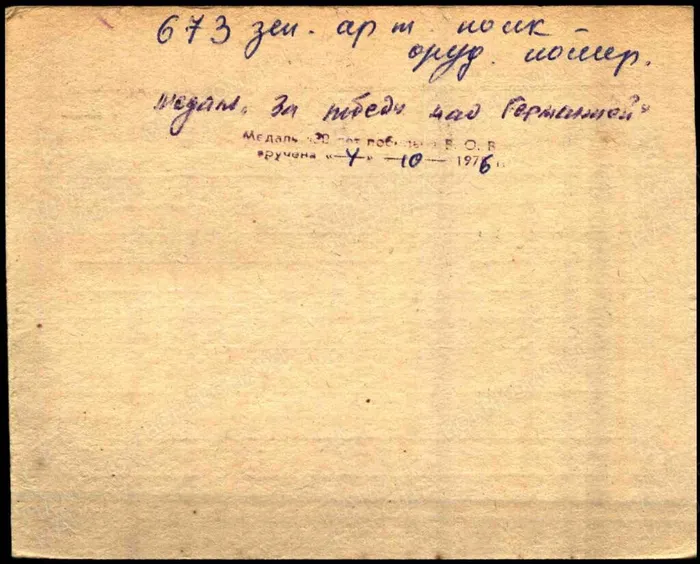 673 зен. арт. полк
оруд. номер.
медаль „За победу над Германией"
Медаль «30 лет победы в В. О. В.
вручена «4» 10 1976 г.